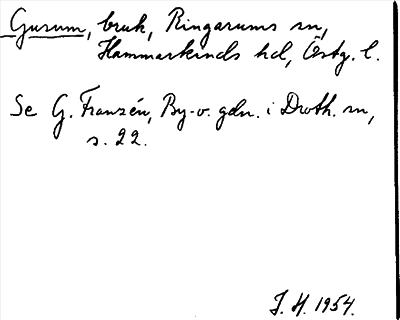 Gusum, bruk, Ringarums sn,
Hammarkinds hd, Östg. l.
Se G. Franzén, By-o. gdn. i Droth. sn,
s. 22.
J. H. 1954.